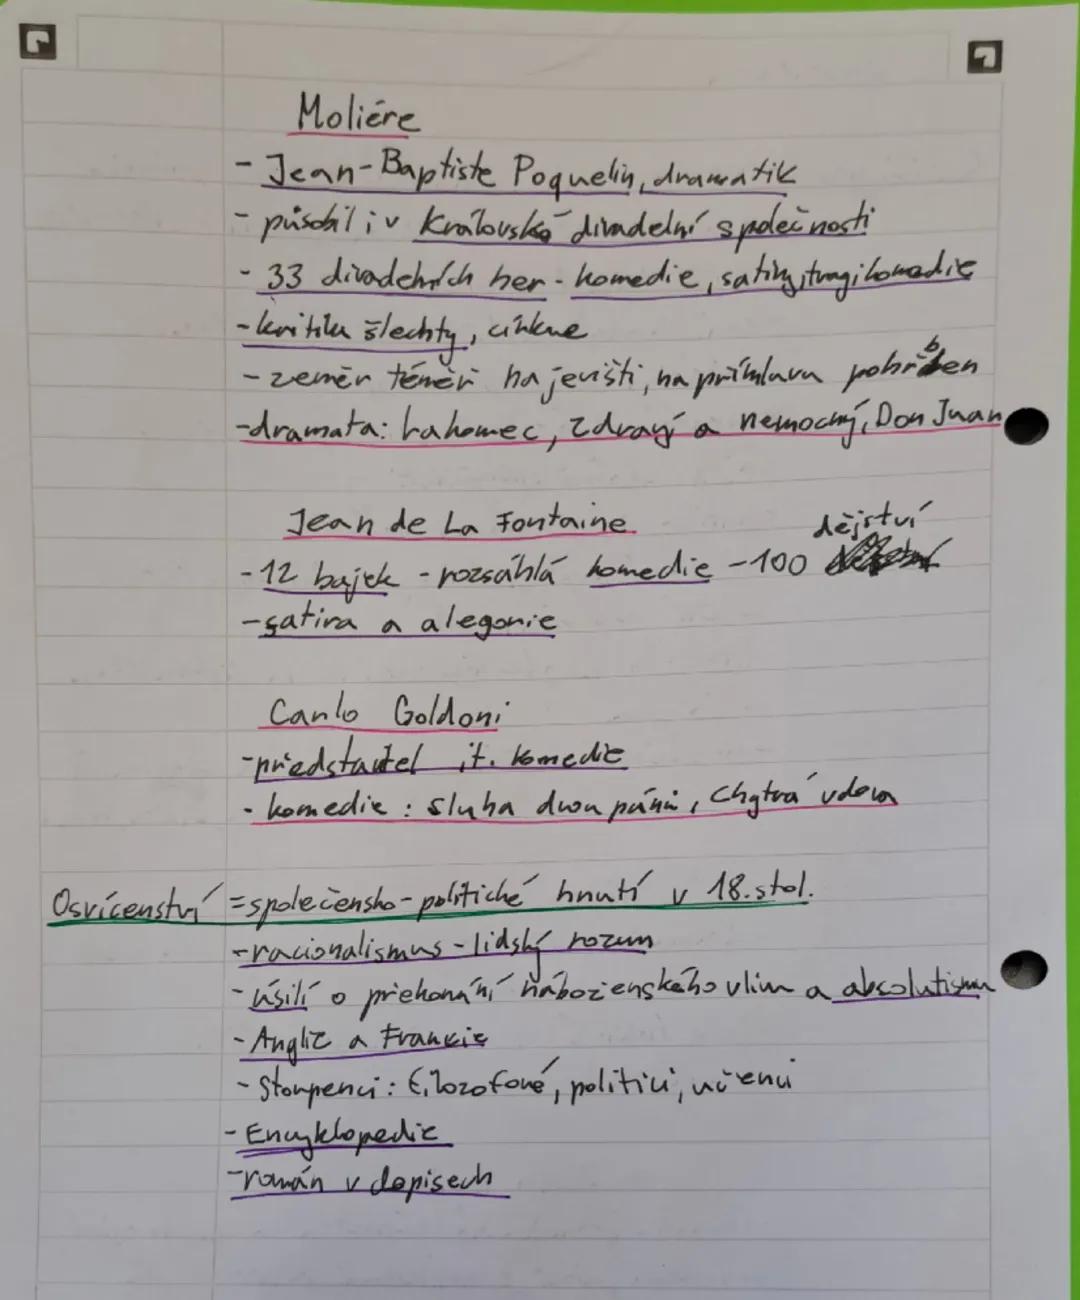 Moliére
- Jean-Baptiste Poquelin, dramatik
- působil i v Královské divadelní společnosti
- 33 divadelních her - komedie, satiry, tragikomedie
- kritika šlechty, církve
- zemřel téměř na jevišti, na přímluvu pohřben
- dramata: Lakomec, Zdravý a nemocný, Don Juan
Jean de La Fontaine
- 12 bajek - rozsáhlá komedie - 100 dějství
- satira a alegorie
Carlo Goldoni
- představitel it. komedie
- komedie: sluha dvou pánů, Chytrá vdova
Osvícenství = společensko-politické hnutí v 18. stol.
- racionalismus - lidský rozum
- úsilí o překonání náboženského vlivu a absolutismu
- Anglie a Francie
- Stoupenci: filozofové, politici, učenci
- Encyklopedie
- román v dopisech